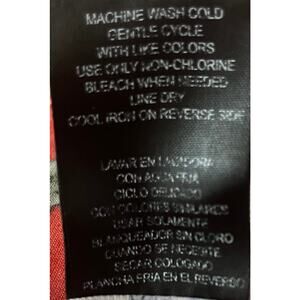 MACHINE WASH COLD
GENTLE CYCLE
WITH LIKE COLORS
USE ONLY NON-CHLORINE
BLEACH WHEN NEEDED
LINE DRY
COOL IRON ON REVERSE SIDE
LAVAR EN LAVADORA
CON AGUA FRIA
CICLO DELICADO
CON COLORES SIMILARES
USAR SOLAMENTE
BLANQUEADOR SIN CLORO
CUANDO SE NECESITE
SECAR COLGADO
PLANCHA FRIA EN EL REVERSO